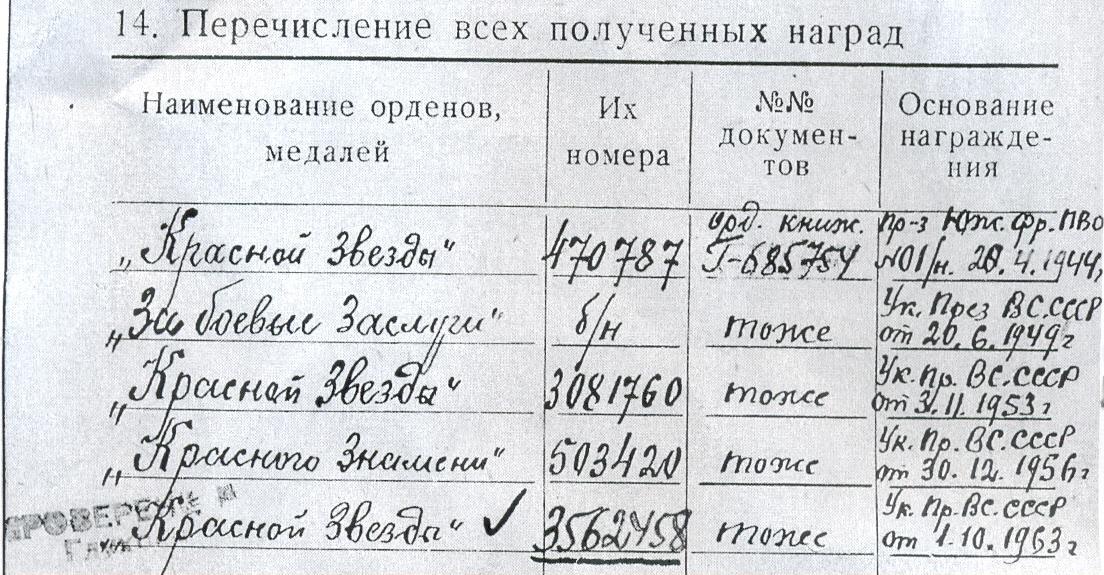 14. Перечисление всех полученных наград
Наименование орденов, медалей
Их номера
№№ докумен-
тов
Основание
награжде-
ния
„Красной Звезды“ 470787 орд. книж. Г-685754 пр-з Юж. фр. ПВО №01/н. 28.4.1944,
„За боевые Заслуги“ б/н тоже Ук. През ВС.СССР от 20.6.1949г
„Красной Звезды“ 3081760 тоже Ук. Пр. ВС.СССР от 3.11.1953г
„Красного Знамени“ 503420 тоже Ук. Пр. ВС.СССР от 30.12.1956г
„Красной Звезды“ ✓ 3562458 тоже Ук. Пр. ВС.СССР от 1.10.1963г
ПРОВЕРЕНЕ